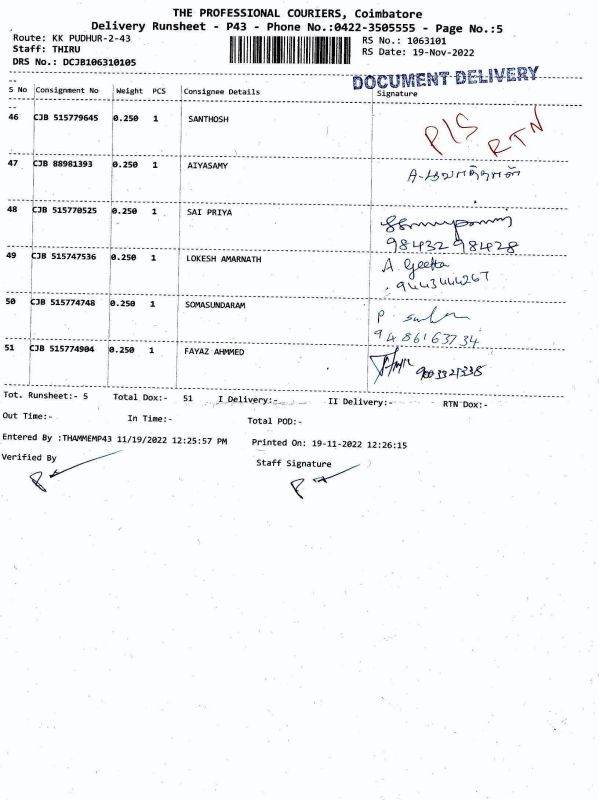 THE PROFESSIONAL COURIERS, Coimbatore
Delivery Runsheet - P43 - Phone No.:0422-3505555 - Page No.:5
Route: KK PUDHUR-2-43 RS No.: 1063101
Staff: THIRU RS Date: 19-Nov-2022
DRS No.: DCJB106310105
DOCUMENT DELIVERY
S No Consignment No Weight PCS Consignee Details Signature
46 CJB 515779645 0.250 1 SANTHOSH
P/S RTN
47 CJB 88981393 0.250 1 AIYASAMY
48 CJB 515770525 0.250 1 SAI PRIYA
98432 98428
49 CJB 515747536 0.250 1 LOKESH AMARNATH A. Geetha
9443444267
50 CJB 515774748 0.250 1 SOMASUNDARAM
9486163734
51 CJB 515774904 0.250 1 FAYAZ AHMMED
Tot. Runsheet:- 5 Total Dox:- 51 I Delivery:- II Delivery:- RTN Dox:-
Out Time:- In Time:- Total POD:-
Entered By :THAMMEMP43 11/19/2022 12:25:57 PM Printed On: 19-11-2022 12:26:15
Verified By Staff Signature